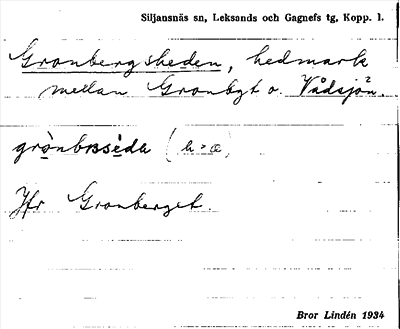 Siljansnäs sn, Leksands och Gagnefs tg, Kopp. l.
Gronbergsheden, hedmark
mellan Gronbgt o. Vådsjön.
Jfr Gronberget.
Bror Lindén 1934